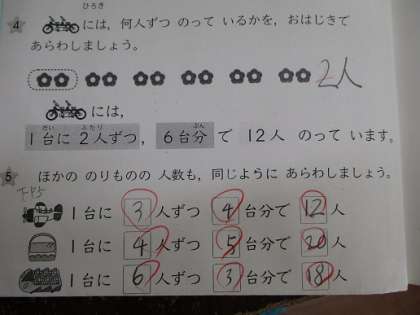 ひろき
4 には，何人ずつ のって いるかを，おはじきで
あらわしましょう。
2人
には，
だい ふたり ぶん
1台に 2人ずつ，6台分 で 12人 のって います。
5 ほかの のりものの 人数も，同じように あらわしましょう。
1台に 3 人ずつ 4 台分で 12 人
1台に 4 人ずつ 5 台分で 20 人
1台に 6 人ずつ 3 台分で 18 人